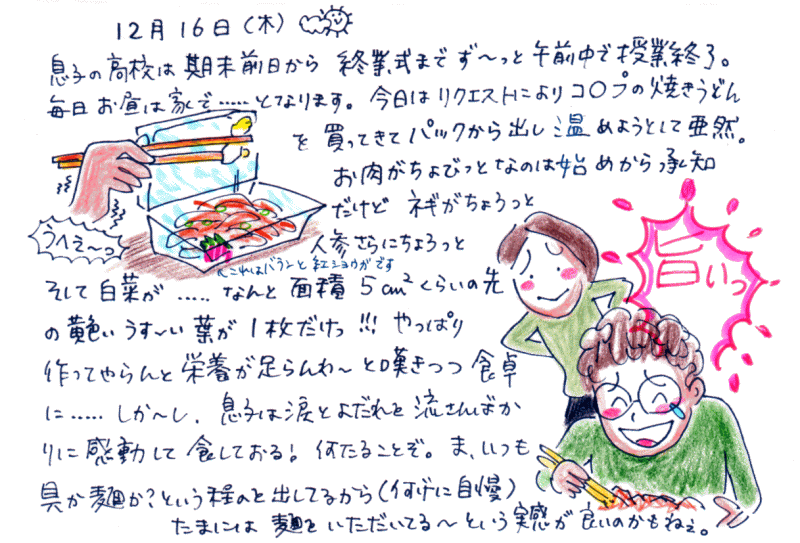 12月16日(木)
息子の高校は期末前日から 終業式までず〜っと午前中で授業終了。
毎日お昼は家で……となります。今日はリクエストによりコ〇プの焼きうどん
を買ってきてパックから出し温めようとして亜然。
お肉がちょびっとなのは始めから承知
だけど ネギがちょろっと
うへぇ〜っ
人参さらにちょろっと
↖これはバランと紅ショウガです
旨いっ
そして白菜が ‥‥‥ なんと 面積 5cm²くらいの先
の黄色いうす〜い葉が1枚だけっ!!! やっぱり
作ってやらんと栄養が足らんわ〜と嘆きつつ 食卓
に…… しか〜し、息子は涙とよだれを流さんばか
りに感動して食しておる! 何たることぞ。ま、いつも
具か麺か?という程のを出してるから(何げに自慢)
たまには 麺をいただいてる〜という実感が良いのかもねぇ。